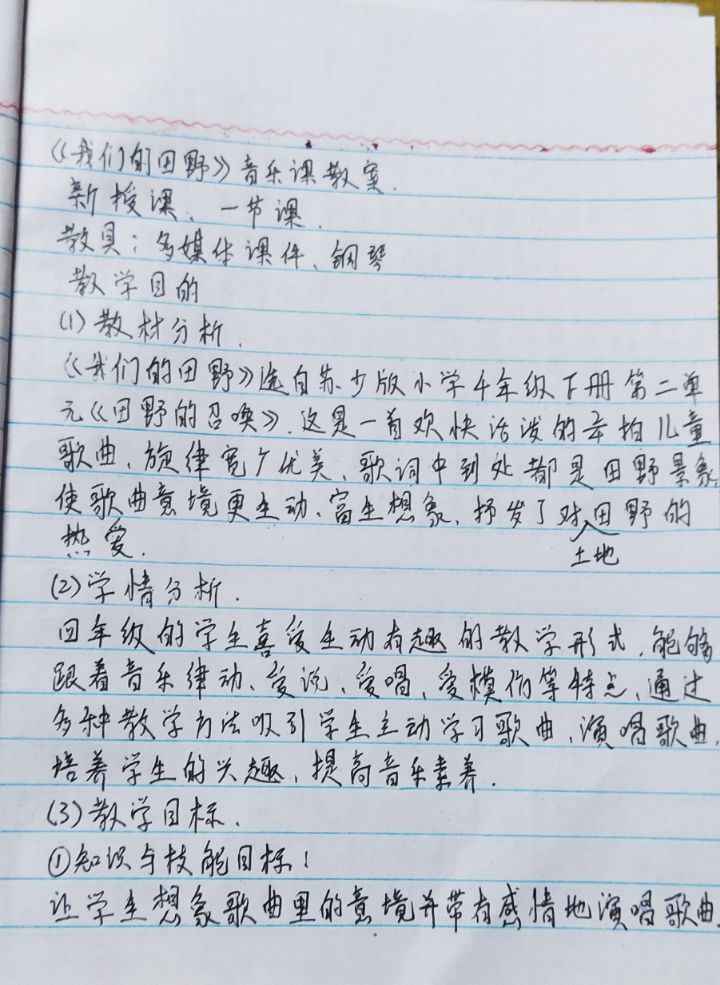 《我们的田野》音乐课教案.
新授课、一节课.
教具：多媒体课件、钢琴
教学目的
(1)教材分析.
《我们的田野》选自苏少版小学4年级下册第二单
元《田野的召唤》.这是一首欢快活泼的 拍儿童
歌曲,旋律宽广优美、歌词中到处都是田野景象,
使歌曲意境更生动、富生想象、抒发了对田野的
土地
热爱.
(2)学情分析.
四年级的学生喜爱生动有趣的教学形式,能够
跟着音乐律动、爱说、爱唱,爱模仿等特点,通过
多种教学方法吸引学生主动学习歌曲,演唱歌曲,
培养学生的兴趣,提高音乐素养.
(3)教学目标.
①知识与技能目标:
让学生想象歌曲里的意境并带有感情地演唱歌曲.